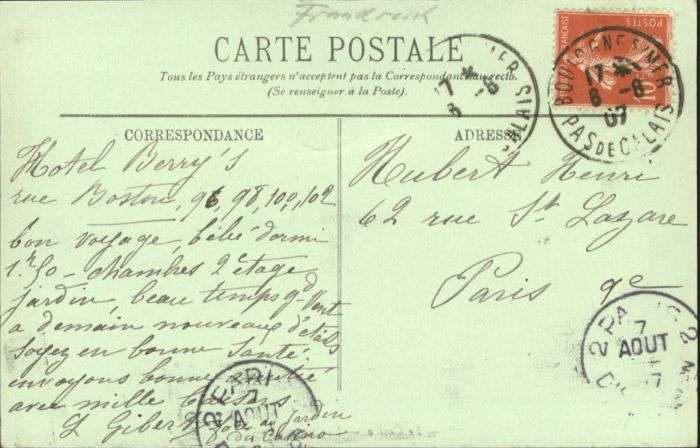 CARTE POSTALE
Tous les Pays étrangers n'acceptent pas la Correspondance au recto.
(Se renseigner à la Poste).
CORRESPONDANCE
Hotel Berry's
rue Boston, 96, 98, 100, 102
bon voyage, bébé dormi
1.r50 - chambres 2e étage
jardin, beau temps gd vent
a demain nouveaux détails
soyez en bonne santé
envoyons bonne amitié
avec mille baisers
L Gibert
jardin
du Casino
ADRESSE
Hubert Henri
62 rue St Lazare
Paris 9e
BOULOGNE S/MER
17 *
6 -8
07
PAS DE CALAIS
S/MER
17 *
6 -8
CALAIS
10
2 PARIS 2
7
AOUT
PARI
7
AOUT